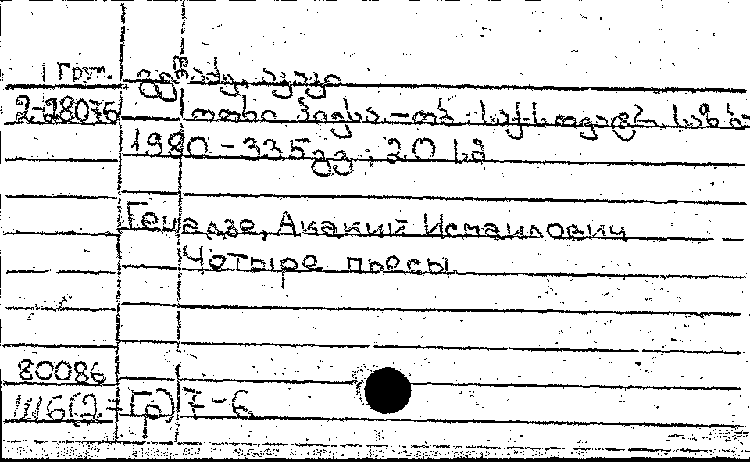 Груз. გეწაძე, აკაკი
2-28076 ოთხი პიესა.-თბ.: საქ.
1980 - 335გვ ; 20 სმ
Гецадзе, Акакий Исмаилович
Чотыре пьесы.
80086
Ш6(2=Гр)7-6